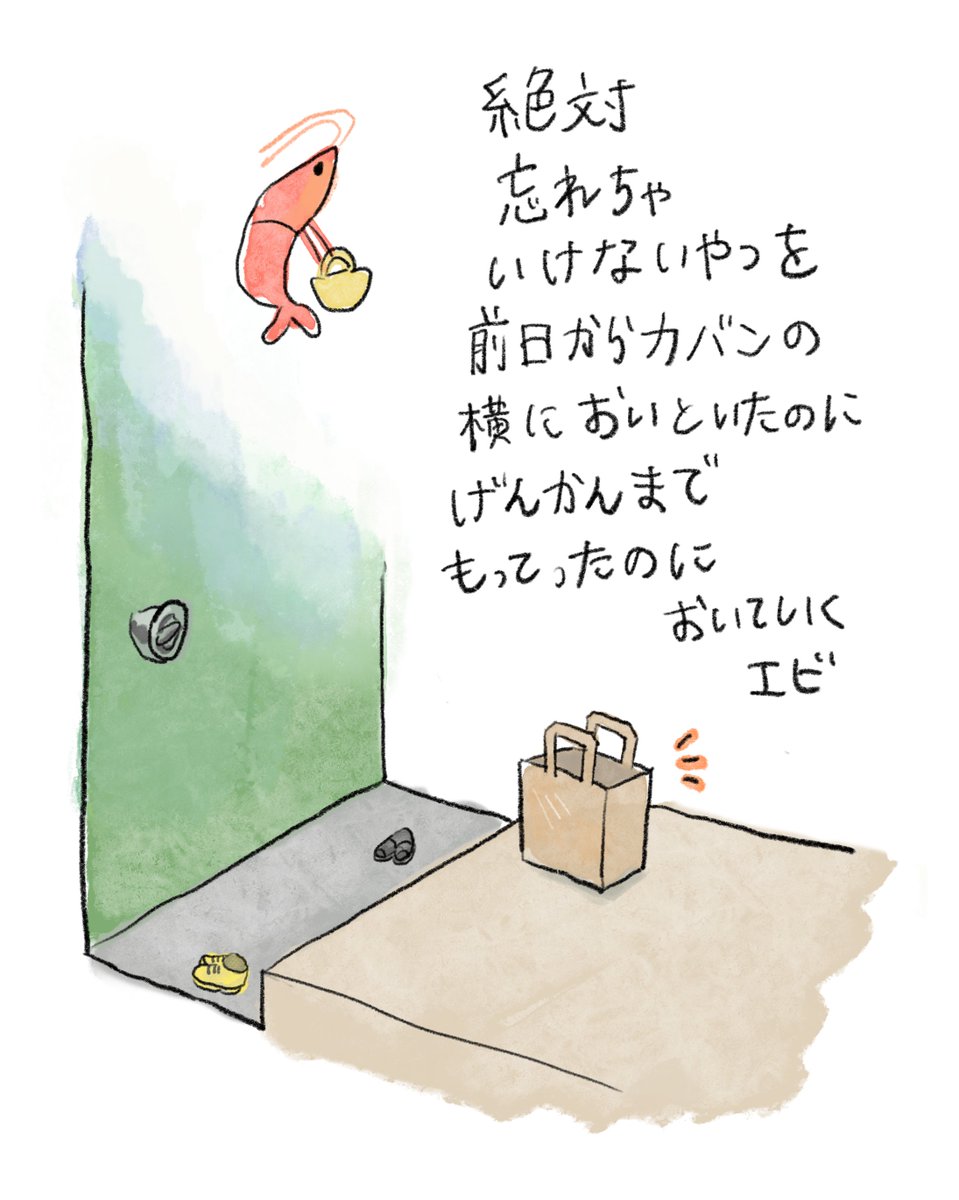 絶対
忘れちゃ
いけないやつを
前日からカバンの
横においといたのに
げんかんまで
もってったのに
おいていく
エビ